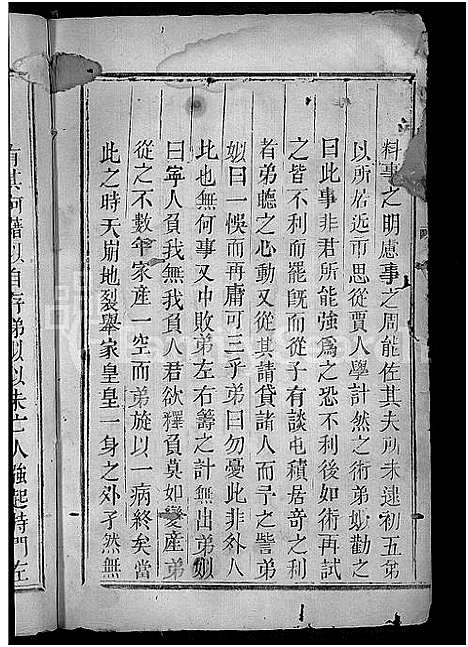 料事之明慮事之周能佐其夫所未逮初五弟
以所居近市思從賈人學計然之術弟姒勸之
曰此事非君所能強為之恐不利後如術再試
之皆不利而罷旣而從子有談屯積居奇之利
者弟聽之心動又從其請貸諸人而予之訾弟
姒曰一悞而再庸可三乎弟曰勿憂此非外人
比也無何事又中敗弟左右籌之計無出弟姒
曰寜人負我無我負人君欲釋負莫如變産弟
從之不數年家産一空而弟旋以一病終矣當
此之時天崩地裂舉家皇皇一身之外孑然無
有其何藉以自存弟姒以未亡人強起持門左